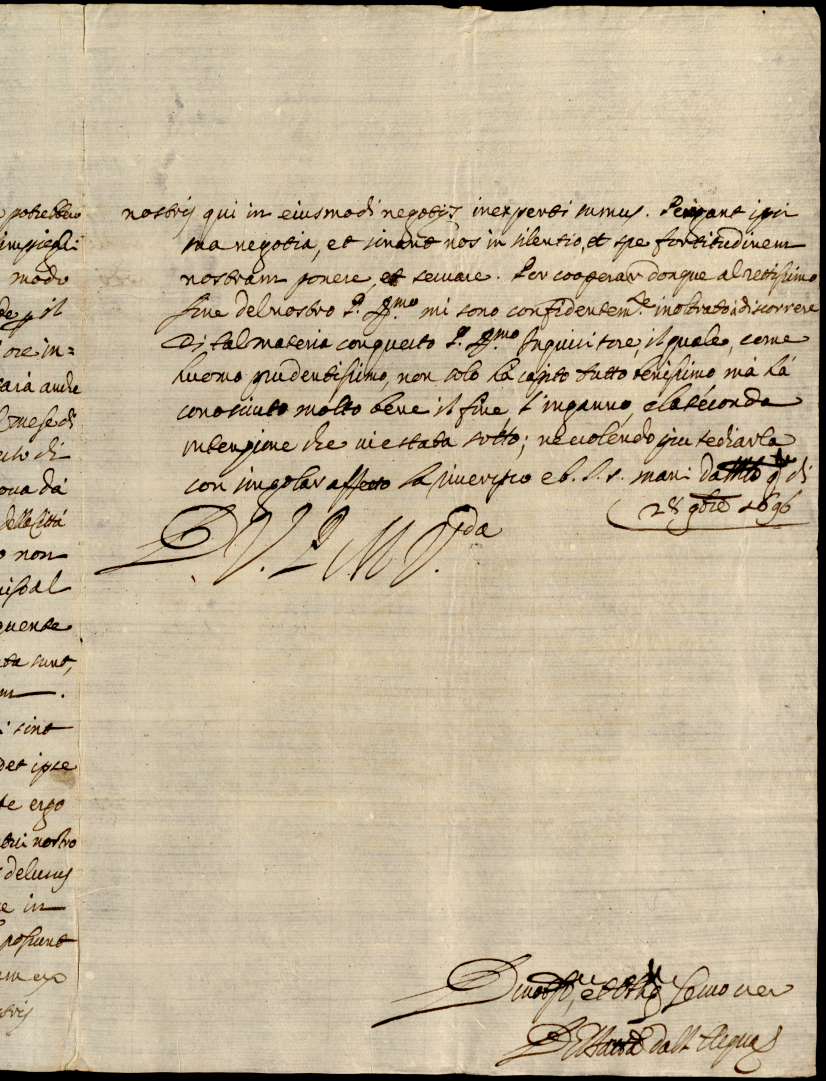 potrebbero
impieghi
modo
de p il
ore in=
sarà anche
mese di
di
oua dà
della Città
non
al
quente
ta sunt,
m .
sint
det ipse
te ergo
tui nostro
delusus
e in
possunt
nostris qui in eiusmodi negotijs inexperti sumus. Peragant ipsi
sua negotia, et sinant nos in silentio, et spe fortitudinem
nostram ponere, et seruare. Per cooperar donque al rettissimo
fine del nostro P. Gmo mi sono confidentemte inoltrato à discorrere
di tal materia con questo P. Rmo Inquisitore, il quale, come
huomo prudentissimo, non solo hà capito tutto benissimo mà hà
conosciuto molto bene il fine, l'inganno, e la seconda
intenzione che ui e stata sotto; ne uolendo piu tediarla
con singolar affetto la riuerisco e b. l. s. mani di
28 9bre 1696
D V. P. M. Rda
Diuotismo, et seruo uer
dall Acqua